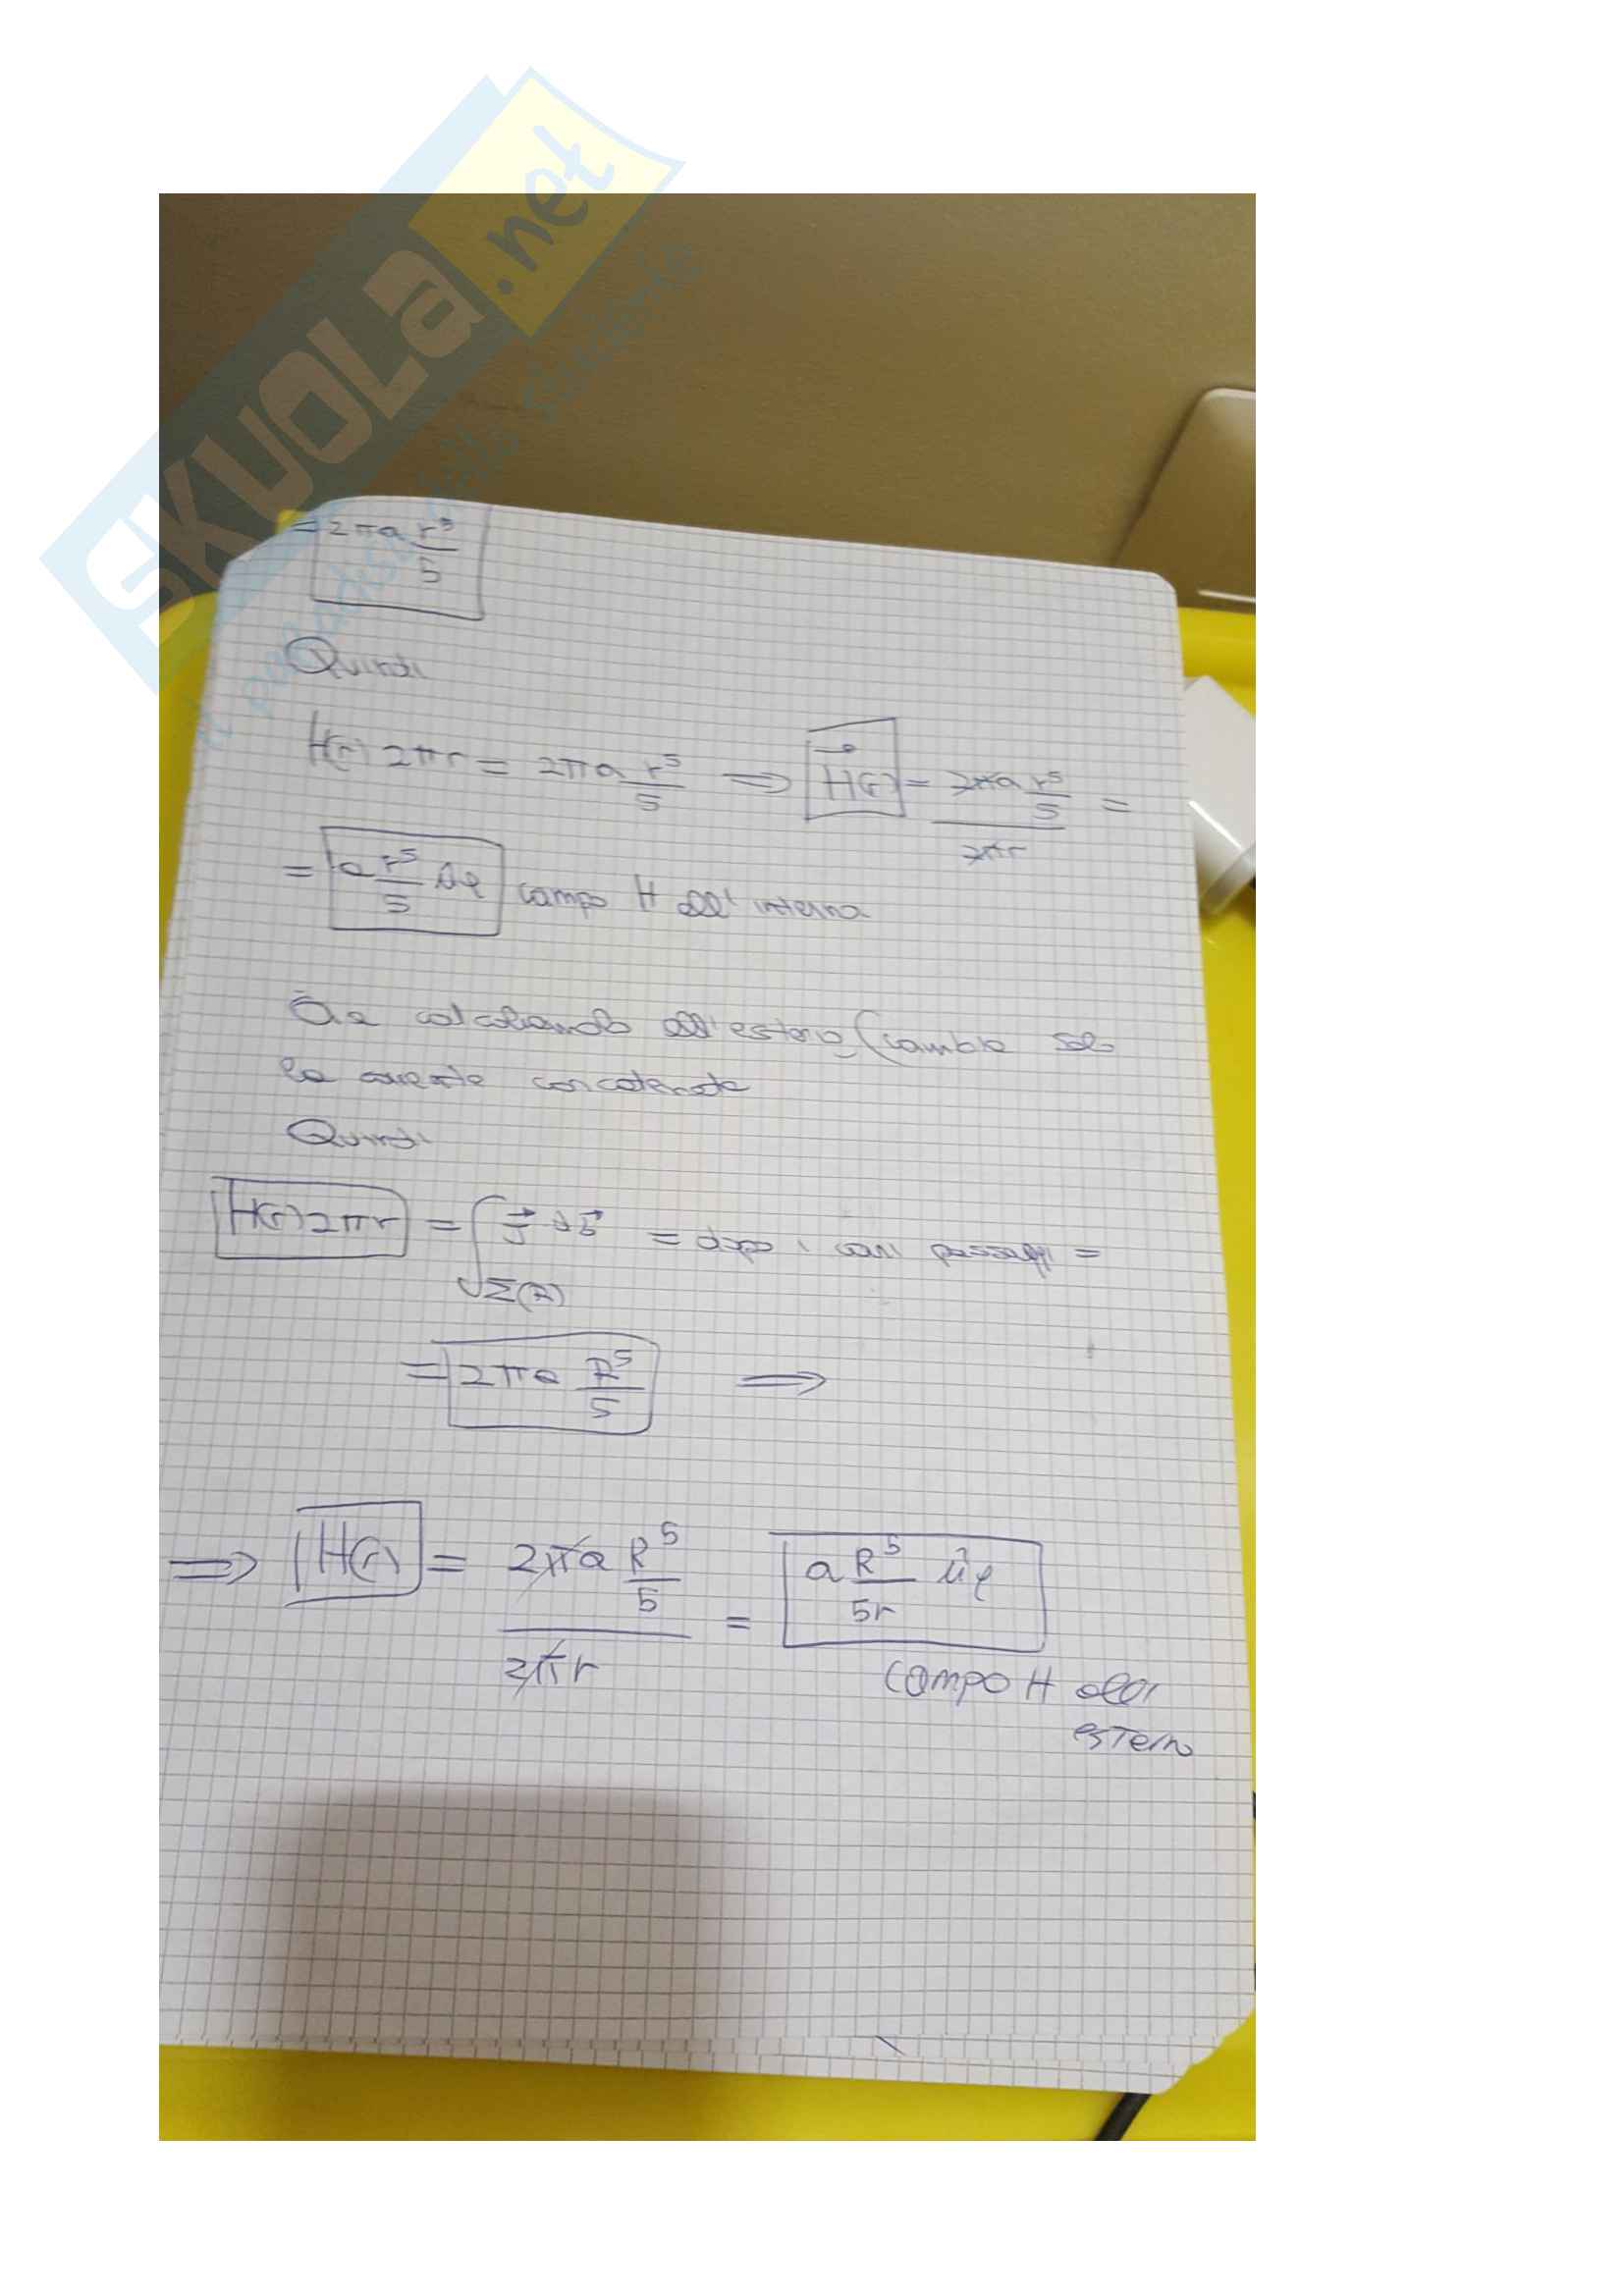 SKUOLA.net
il paradiso dello studente
= 2πa r⁵/5
Quindi
H(r) 2πr = 2πa r⁵/5 ⟹ H⃗(r) = 2πa r⁵/5 / 2πr =
= a r⁵/5 ûφ campo H all'interno
Ora calcoliamolo all'esterno (cambia solo
la corrente concatenata
Quindi
H(r) 2πr = ∫Σ(R) J⃗ dS⃗ = dopo i vari passaggi =
= 2πa R⁵/5 ⟹
⟹ H(r) = 2πa R⁵/5 / 2πr = a R⁵/5r ûφ
campo H all'
esterno